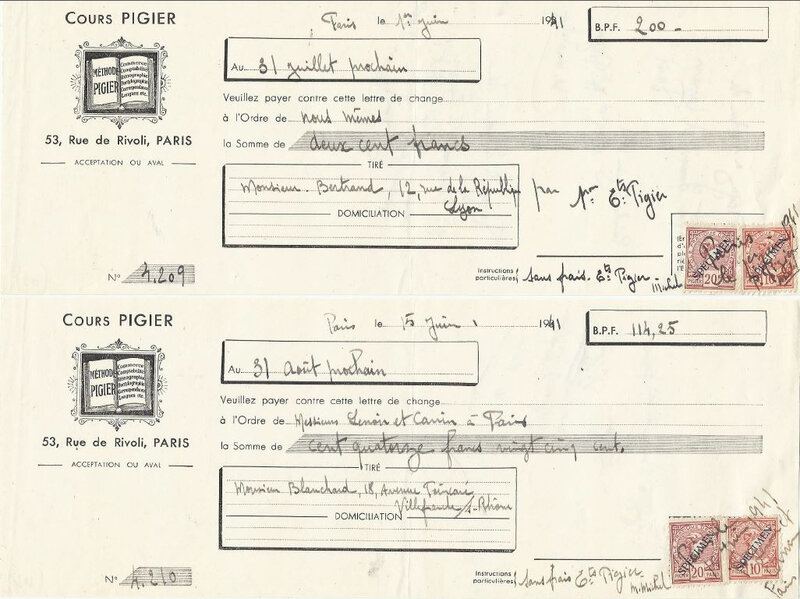 COURS PIGIER
Paris le 1er Juin 1941
B.P.F. 200 -
MÉTHODE PIGIER
Commerce
Comptabilité
Sténographie
Dactylographie
Correspondance
Langues, etc.
AU 31 Juillet prochain
Veuillez payer contre cette lettre de change
à l'Ordre de nous mêmes
53, Rue de Rivoli, PARIS
la Somme de deux cent francs
ACCEPTATION OU AVAL
TIRÉ
Monsieur Bertrand, 12, rue de la République
Lyon
par Ets Pigier
DOMICILIATION
No 4.209
Instructions particulières: Sans frais. Ets Pigier
Michel
SPECIMEN 20
SPECIMEN 10
Paris
1941
COURS PIGIER
Paris le 15 Juin 1941
B.P.F. 114,25
MÉTHODE PIGIER
Commerce
Comptabilité
Sténographie
Dactylographie
Correspondance
Langues, etc.
AU 31 Août prochain
Veuillez payer contre cette lettre de change
à l'Ordre de Messieurs Lenoir et Camin à Paris
53, Rue de Rivoli, PARIS
la Somme de cent quatorze francs vingt cinq cent.
ACCEPTATION OU AVAL
TIRÉ
Monsieur Blanchard, 18, Avenue Poincaré
Villefranche s/-Rhône
DOMICILIATION
No 4.210
Instructions particulières: Sans frais Ets Pigier
M. Michel
SPECIMEN 20
SPECIMEN 10
1941
Paris